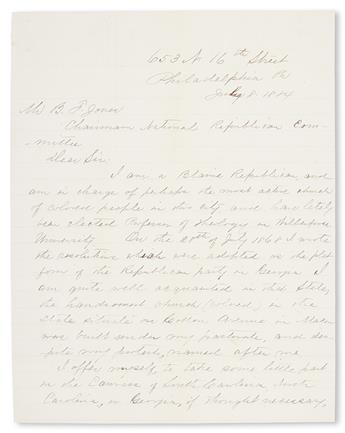 653 N 16th Street
Philadelphia Pa
July 8. 1884
Mr B. F. Jones
Chairman National Republican Com-
mittee
Dear Sir
I am a Blaine Republican, and
am in charge of perhaps the most active church
of colored people in this city and have lately
been elected Professor of Theology in Wilberforce
University. On the 20th of July 1868 I wrote
the resolutions which were adopted as the plat
form of the Republican party in Georgia. I
am quite well acquainted in that State,
the handsomest church (colored) in the
State situate on Cotton Avenue in Macon
was built under my pastorate, and des-
pite my protest, named after me
I offer myself, to take some little part
in the Canvass of South Carolina, North
Carolina, or Georgia, if thought necessary,